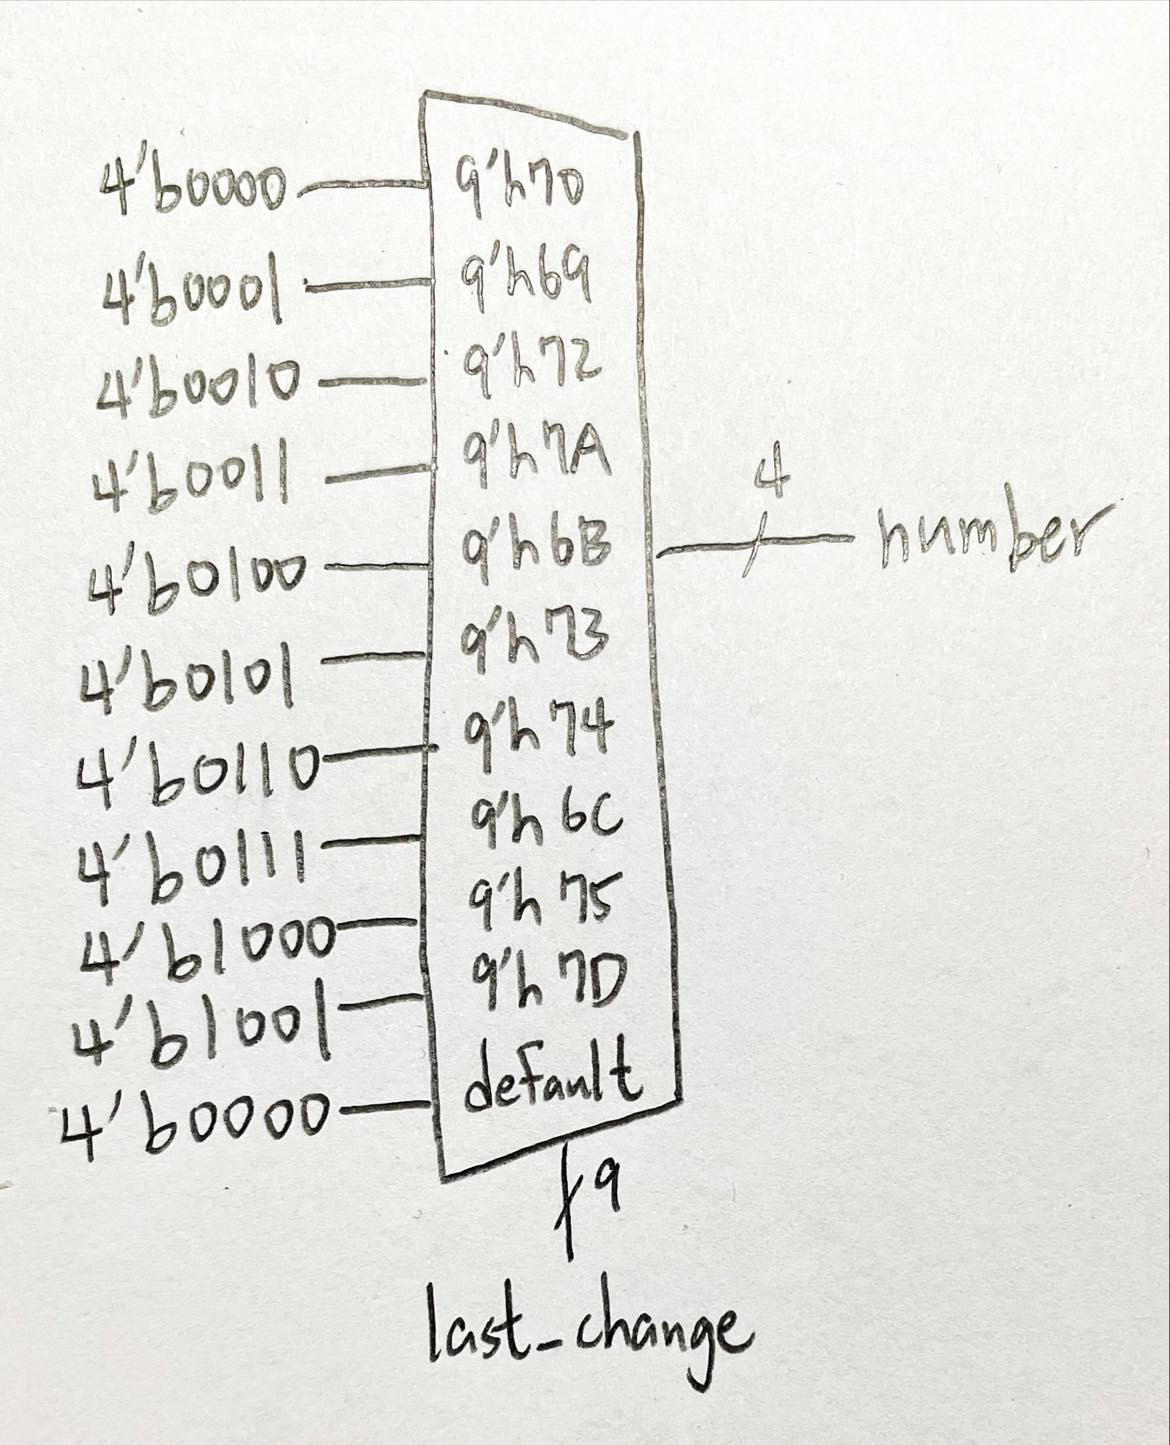 4'b0000 9'h70
4'b0001 9'h69
4'b0010 9'h72
4'b0011 9'h7A
4
4'b0100 9'h6B number
4'b0101 9'h73
4'b0110 9'h74
4'b0111 9'h6C
4'b1000 9'h75
4'b1001 9'h7D
4'b0000 default
9
last_change